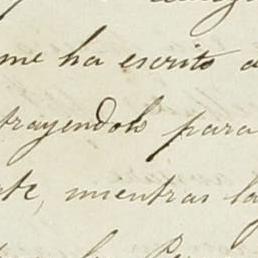 me ha escrito a
trayendolo para
te, mientras la